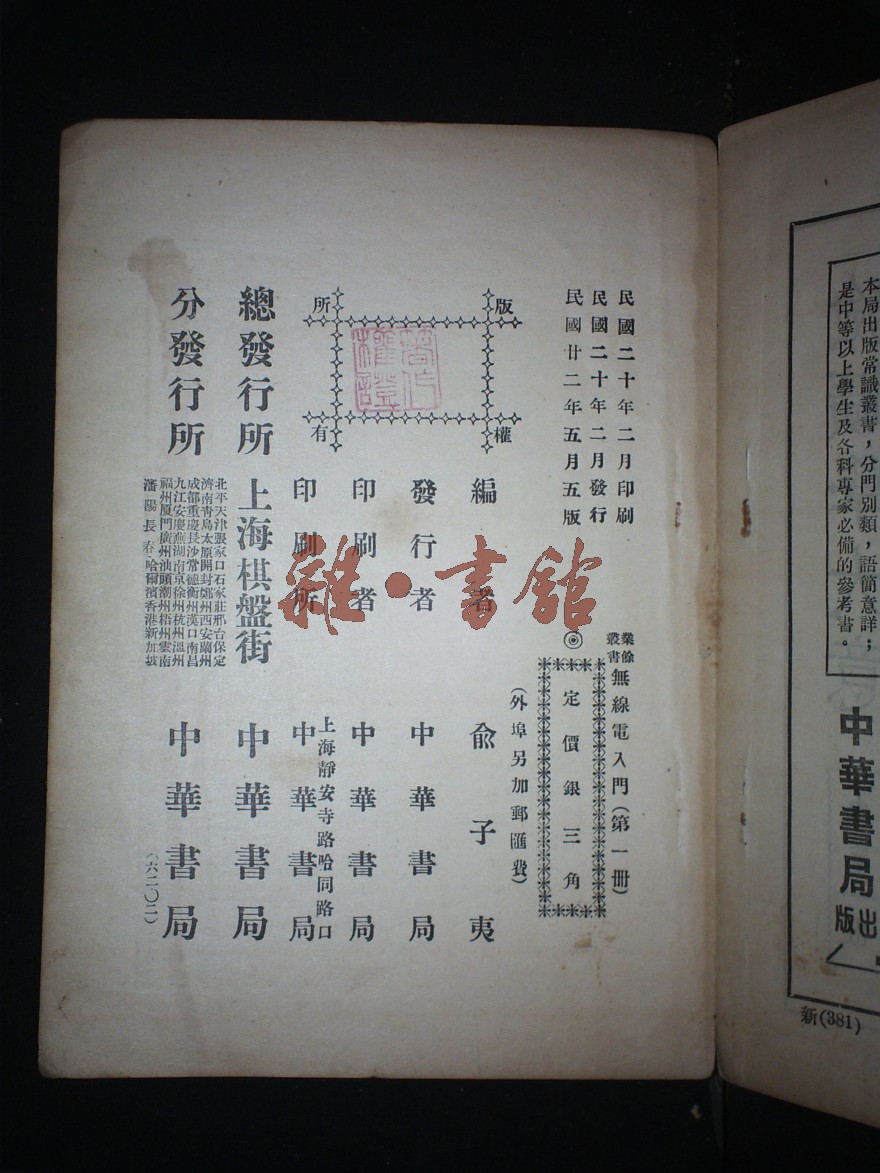 民國二十年二月印刷
民國二十年二月發行
民國廿二年五月五版
業餘叢書 無線電入門(第一冊)
◎定價銀三角
(外埠另加郵匯費)
版權所有
著作權證
編者 俞子夷
發行者 中華書局
印刷者 中華書局
上海靜安寺路哈同路口
印刷所 中華書局
總發行所 上海棋盤街 中華書局
分發行所
北平天津張家口石家莊邢台保定
濟南青島太原開封鄭州西安蘭州
成都重慶長沙常德衡州漢口南昌
九江安慶蕪湖南京徐州杭州溫州
福州厦門廣州汕頭潮州梧州雲南
瀋陽長春哈爾濱香港新加坡
中華書局
(六二〇二)
雜·書館
本局出版常識叢書,分門別類,語簡意詳;
是中等以上學生及各科專家必備的參考書。
中華書局出版
新(381)